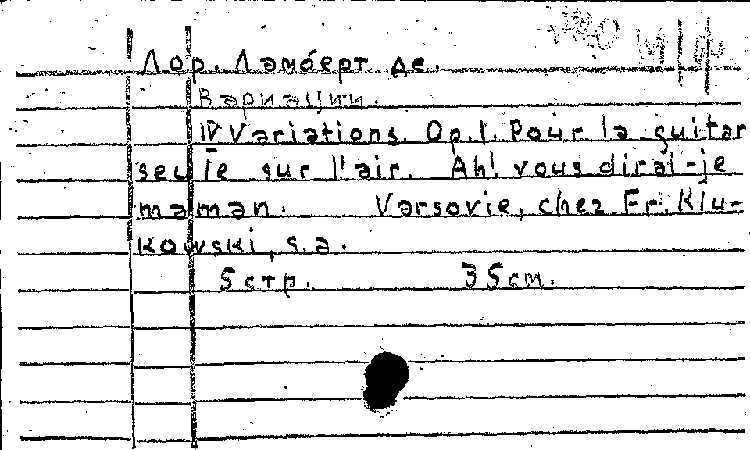 М/Ф
Лор. Ламберт де.
Вариации.
IV Variations. Op. 1. Pour la guitar
seule sur l'air. Ah! vous dirai-je
maman. Varsovie, chez Fr. Klu-
kowski, s.a.
5 стр. 35 cm.